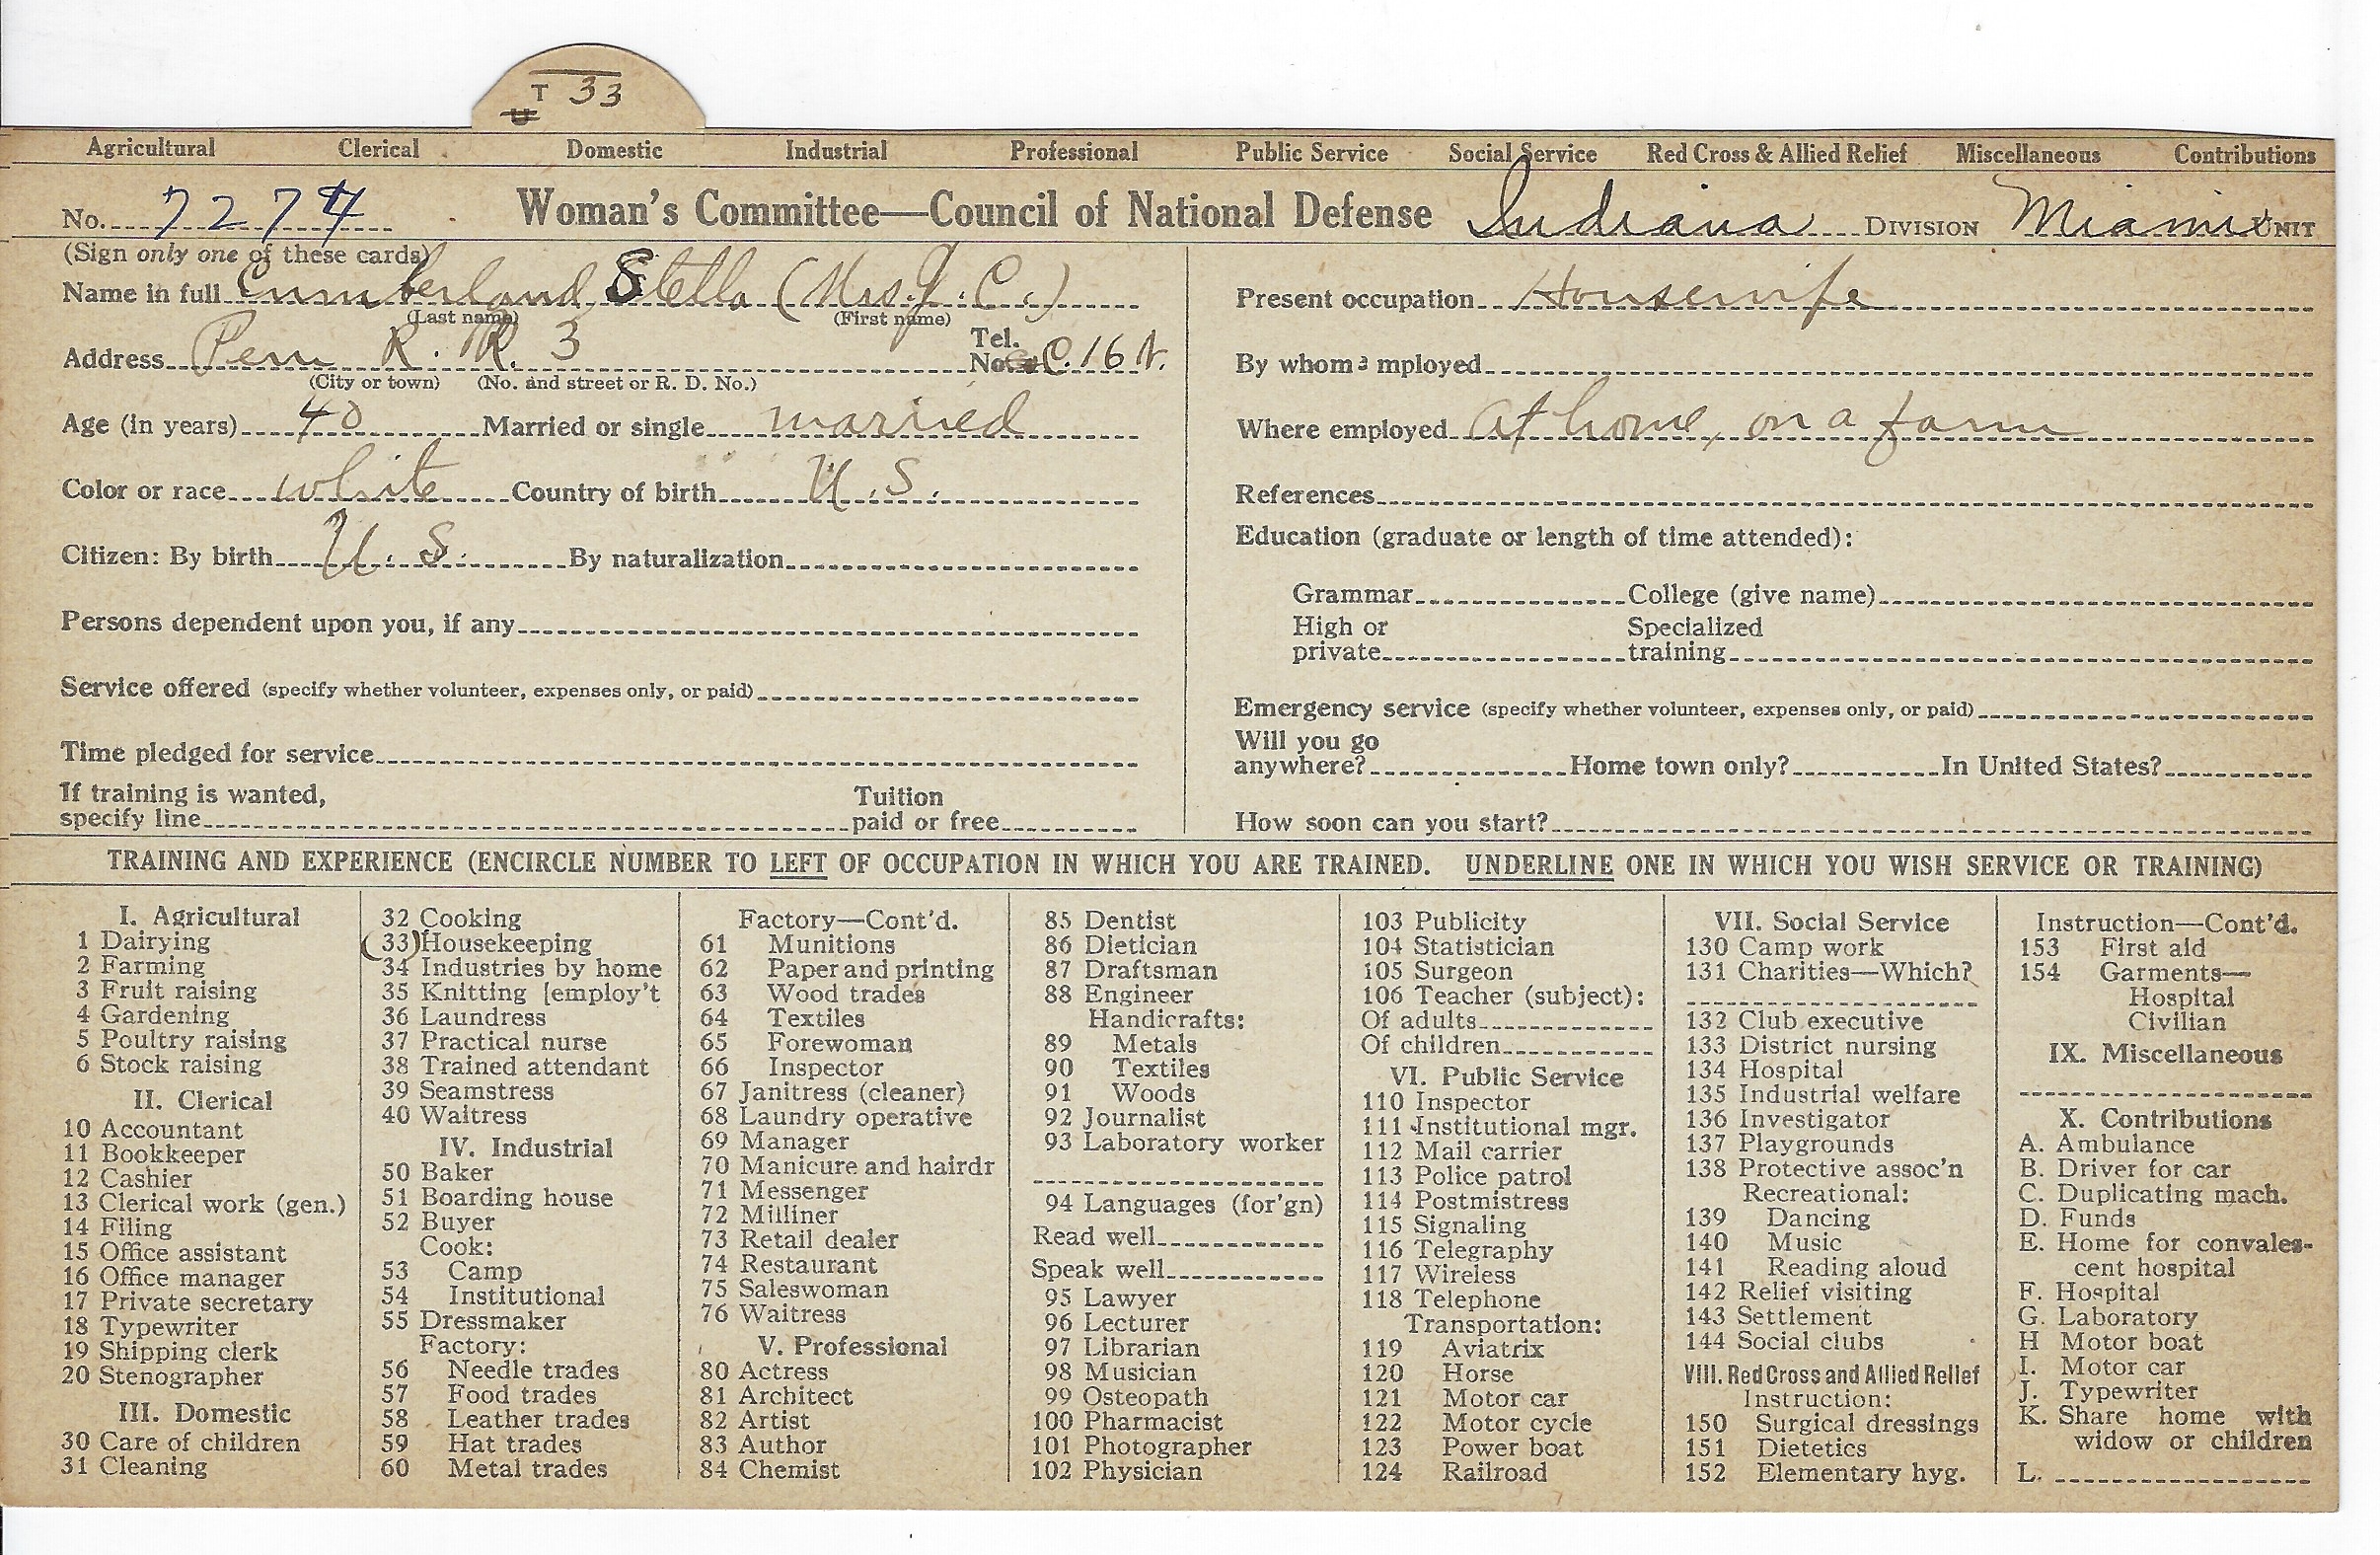 T 33
U
Agricultural Clerical Domestic Industrial Professional Public Service Social Service Red Cross & Allied Relief Miscellaneous Contributions
No. 7274 Woman's Committee—Council of National Defense Indiana DIVISION Miami UNIT
(Sign only one of these cards)
Name in full Cumberland Stella (Mrs. J. C.)
(Last name) (First name)
Address Peru R. R. 3 Tel. No. C. 16
(City or town) (No. and street or R. D. No.)
Age (in years) 40 Married or single married
Color or race white Country of birth U.S.
Citizen: By birth U.S. By naturalization
Persons dependent upon you, if any
Service offered (specify whether volunteer, expenses only, or paid)
Time pledged for service
If training is wanted,
specify line Tuition paid or free
Present occupation Housewife
By whom employed
Where employed at home, on a farm
References
Education (graduate or length of time attended):
Grammar College (give name)
High or private Specialized training
Emergency service (specify whether volunteer, expenses only, or paid)
Will you go
anywhere? Home town only? In United States?
How soon can you start?
TRAINING AND EXPERIENCE (ENCIRCLE NUMBER TO LEFT OF OCCUPATION IN WHICH YOU ARE TRAINED. UNDERLINE ONE IN WHICH YOU WISH SERVICE OR TRAINING)
I. Agricultural
1 Dairying
2 Farming
3 Fruit raising
4 Gardening
5 Poultry raising
6 Stock raising
II. Clerical
10 Accountant
11 Bookkeeper
12 Cashier
13 Clerical work (gen.)
14 Filing
15 Office assistant
16 Office manager
17 Private secretary
18 Typewriter
19 Shipping clerk
20 Stenographer
III. Domestic
30 Care of children
31 Cleaning
32 Cooking
(33) Housekeeping
34 Industries by home
35 Knitting [employ't
36 Laundress
37 Practical nurse
38 Trained attendant
39 Seamstress
40 Waitress
IV. Industrial
50 Baker
51 Boarding house
52 Buyer
Cook:
53 Camp
54 Institutional
55 Dressmaker
Factory:
56 Needle trades
57 Food trades
58 Leather trades
59 Hat trades
60 Metal trades
Factory—Cont'd.
61 Munitions
62 Paper and printing
63 Wood trades
64 Textiles
65 Forewoman
66 Inspector
67 Janitress (cleaner)
68 Laundry operative
69 Manager
70 Manicure and hairdr
71 Messenger
72 Milliner
73 Retail dealer
74 Restaurant
75 Saleswoman
76 Waitress
V. Professional
80 Actress
81 Architect
82 Artist
83 Author
84 Chemist
85 Dentist
86 Dietician
87 Draftsman
88 Engineer
Handicrafts:
89 Metals
90 Textiles
91 Woods
92 Journalist
93 Laboratory worker
94 Languages (for'gn)
Read well
Speak well
95 Lawyer
96 Lecturer
97 Librarian
98 Musician
99 Osteopath
100 Pharmacist
101 Photographer
102 Physician
103 Publicity
104 Statistician
105 Surgeon
106 Teacher (subject):
Of adults
Of children
VI. Public Service
110 Inspector
111 Institutional mgr.
112 Mail carrier
113 Police patrol
114 Postmistress
115 Signaling
116 Telegraphy
117 Wireless
118 Telephone
Transportation:
119 Aviatrix
120 Horse
121 Motor car
122 Motor cycle
123 Power boat
124 Railroad
VII. Social Service
130 Camp work
131 Charities—Which?
132 Club executive
133 District nursing
134 Hospital
135 Industrial welfare
136 Investigator
137 Playgrounds
138 Protective assoc'n
Recreational:
139 Dancing
140 Music
141 Reading aloud
142 Relief visiting
143 Settlement
144 Social clubs
VIII. Red Cross and Allied Relief
Instruction:
150 Surgical dressings
151 Dietetics
152 Elementary hyg.
Instruction—Cont'd.
153 First aid
154 Garments—
Hospital
Civilian
IX. Miscellaneous
X. Contributions
A. Ambulance
B. Driver for car
C. Duplicating mach.
D. Funds
E. Home for convales-
cent hospital
F. Hospital
G. Laboratory
H Motor boat
I. Motor car
J. Typewriter
K. Share home with
widow or children
L.